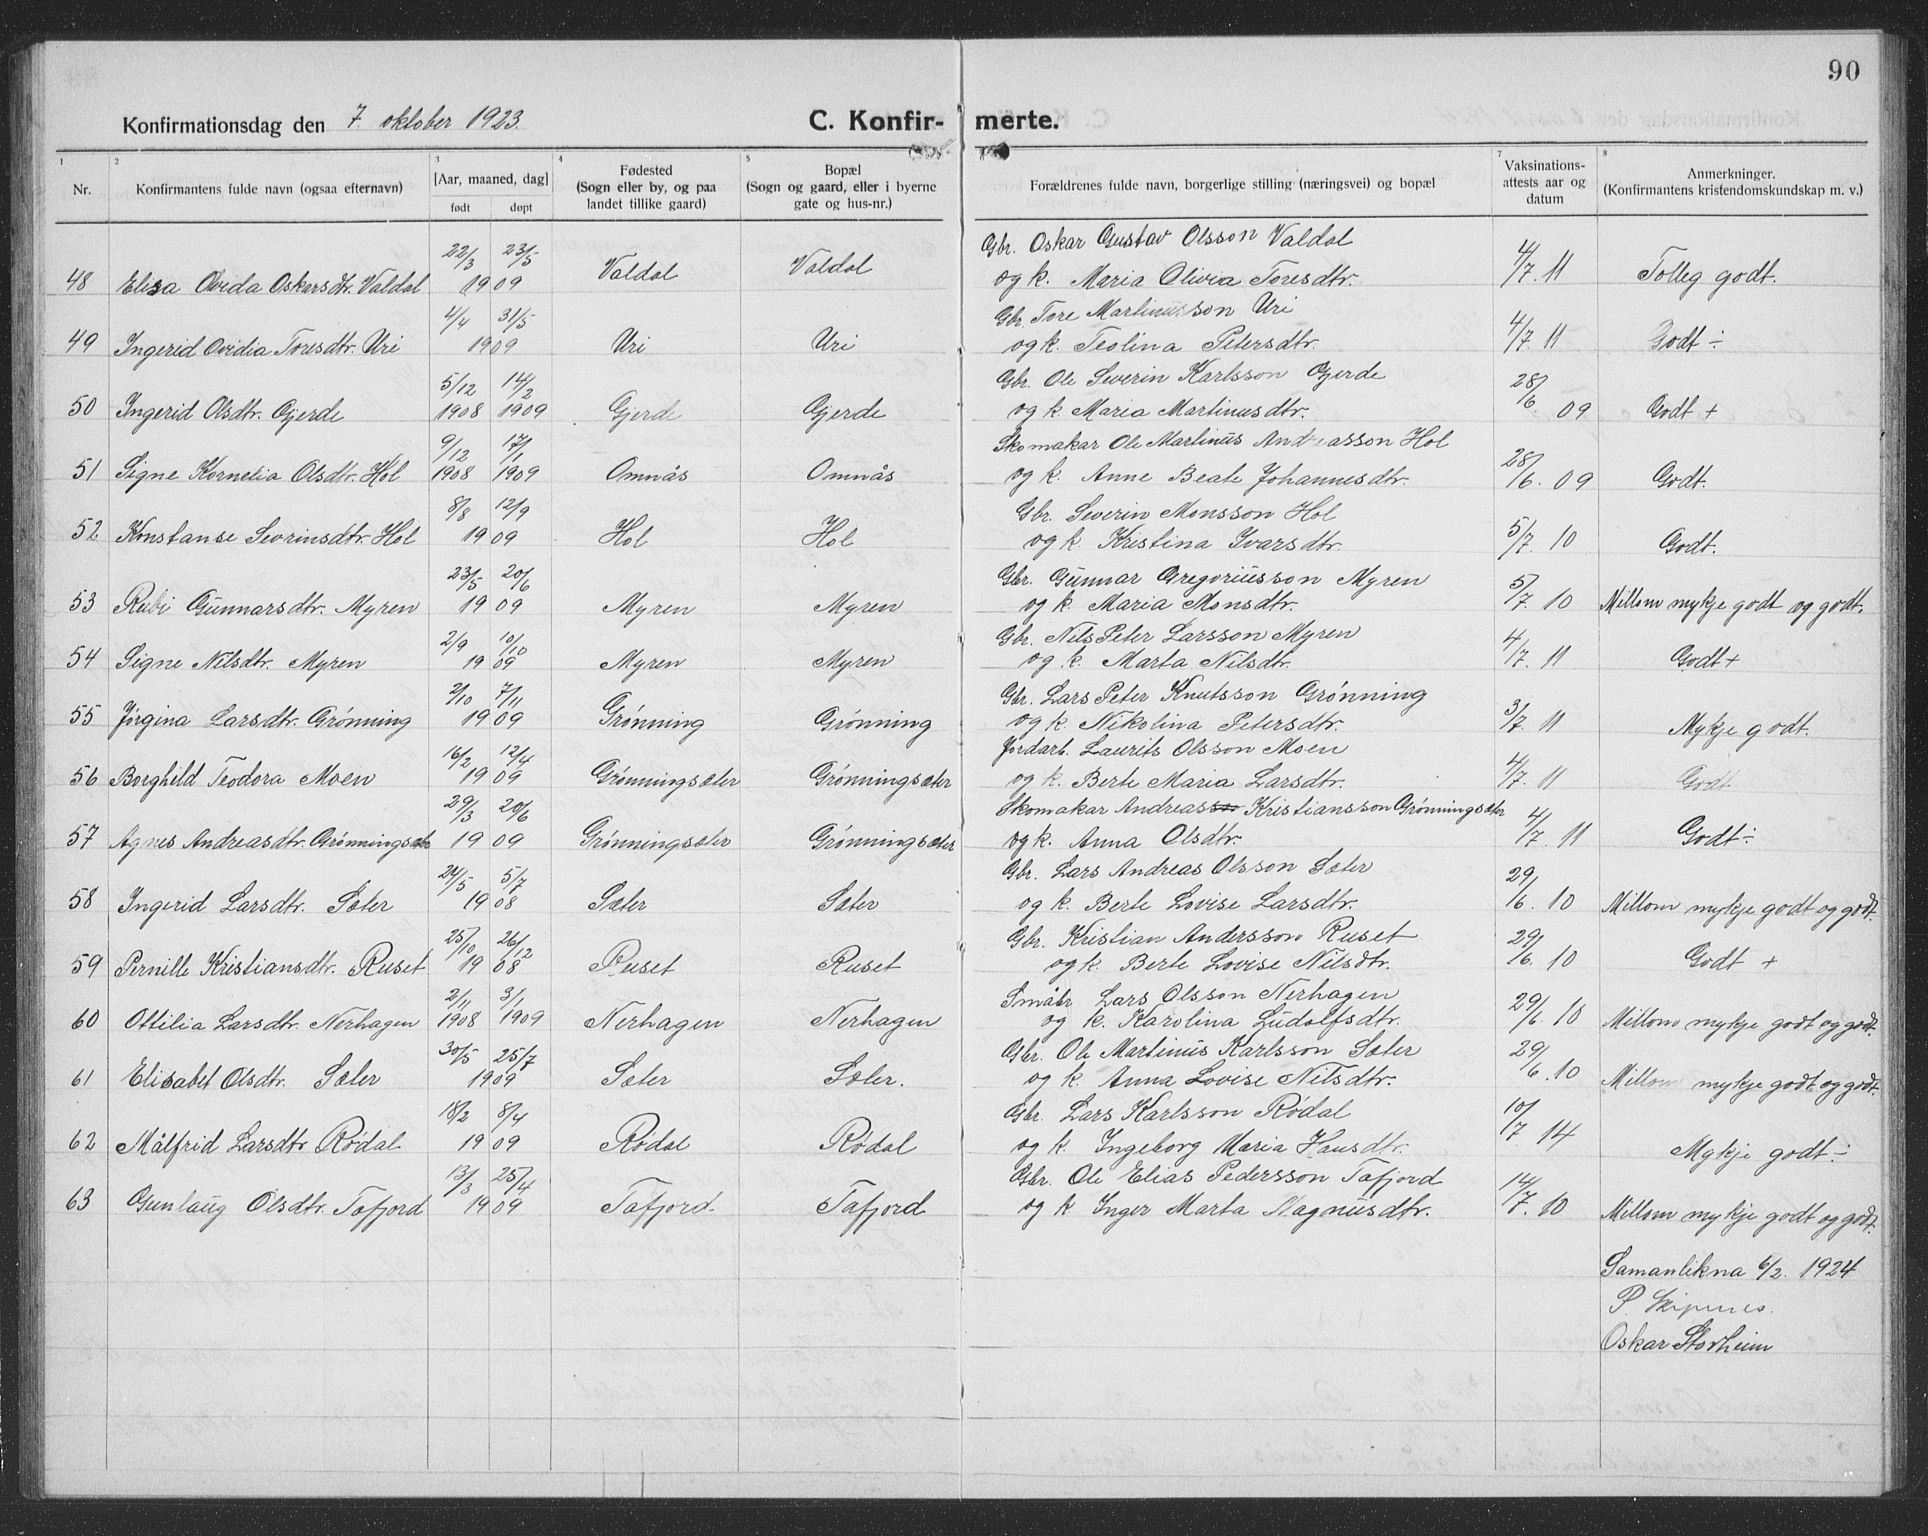 90
Konfirmationsdag den 7. oktober 1923. C. Konfirmerte.
1 2 3 4 5 7 8
Nr. Konfirmantens fulde navn (ogsaa efternavn) [Aar, maaned, dag] født døpt Fødested (Sogn eller by, og paa landet tillike gaard) Bopæl (Sogn og gaard, eller i byerne gate og hus-nr.) Forældrenes fulde navn, borgerlige stilling (næringsvei) og bopæl Vaksinations-attests aar og datum Anmerkninger. (Konfirmantens kristendomskundskap m. v.)
22/3 23/5 Gbr. Oskar Gustav Olsson Valdal
48 Elisa Ovida Oskarsdtr. Valdal 1909 Valdal Valdal og k. Maria Olivia Toresdtr. 4/7. 11 Tolleg godt.
4/4 31/5 Gbr. Tore Martinusson Uri
49 Ingerid Ovidia Toresdtr. Uri 1909 Uri Uri og k. Teolina Petersdtr. 4/7. 11 Godt ÷
5/12 14/2 Gbr. Ole Severin Karlsson Gjerde
50 Ingerid Olsdtr. Gjerde 1908 1909 Gjerde Gjerde og k. Maria Martinusdtr. 28/6. 09 Godt +
9/12 17/1 Skomakar Ole Martinus Andreasson Hol
51 Signe Kornelia Olsdtr. Hol 1908 1909 Omnås Omnås og k. Anne Beate Johannesdtr. 28/6. 09 Godt.
8/8 12/9 Gbr. Severin Monsson Hol
52 Konstanse Sevrinsdtr. Hol 1909 Hol Hol og k. Kristina Ivarsdtr. 5/7. 10 Godt.
23/5 20/6 Gbr. Gunnar Gregoriusson Myren
53 Rubi Gunnarsdtr. Myren 1909 Myren Myren og k. Maria Monsdtr. 5/7. 10 Millom mykje godt og godt.
2/9 10/10 Gbr. Nils Peter Larsson Myren
54 Signe Nilsdtr. Myren 1909 Myren Myren og k. Marta Nilsdtr. 4/7. 11 Godt +
2/10 7/11 Gbr. Lars Peter Knutsson Grønning
55 Jørgina Larsdtr. Grønning 1909 Grønning Grønning og k. Nikolina Petersdtr. 3/7. 11 Mykje godt.
16/2 12/4 Jordarb. Laurits Olsson Moen
56 Borghild Teodora Moen 1909 Grønningsæter Grønningsæter og k. Berte Maria Larsdtr. 4/7. 11 Godt
29/3 20/6 Skomakar Andreas Kristiansson Grønningsæter
57 Agnes Andreasdtr. Grønningsæter 1909 Grønningsæter Grønningsæter og k. Anna Olsdtr. 4/7. 11 Godt ÷
24/5 5/7 Gbr. Lars Andreas Olsson Sæter
58 Ingerid Larsdtr. Sæter 1908 Sæter Sæter og k. Berte Lovise Larsdtr. 29/6. 10 Millom mykje godt og godt.
25/10 26/12 Gbr. Kristian Andersson Ruset
59 Pernille Kristiansdtr. Ruset 1908 Ruset Ruset og k. Berte Lovise Nilsdtr. 29/6. 10 Godt +
2/11 3/1 Småbr. Lars Olsson Nerhagen
60 Ottilia Larsdtr. Nerhagen 1908 1909 Nerhagen Nerhagen og k. Karolina Ludolfsdtr. 29/6. 10 Millom mykje godt og godt.
30/5 25/7 Gbr. Ole Martinus Karlsson Sæter
61 Elisabet Olsdtr. Sæter 1909 Sæter Sæter. og k. Anna Lovise Nilsdtr. 29/6. 10 Millom mykje godt og godt.
18/2 8/4 Gbr. Lars Karlsson Rødal
62 Målfrid Larsdtr Rødal 1909 Rødal Rødal og k. Ingeborg Maria Hansdtr. 10/7 14 Mykje godt ÷
13/3 25/4 Gbr. Ole Elias Pedersson Tafjord
63 Gunlaug Olsdtr. Tafjord 1909 Tafjord Tafjord og k Inger Marta Magnusdtr. 14/7. 10 Millom mykje godt og godt.
Samanlikna 6/2. 1924
P. Skipenes.
Oskar Storheim